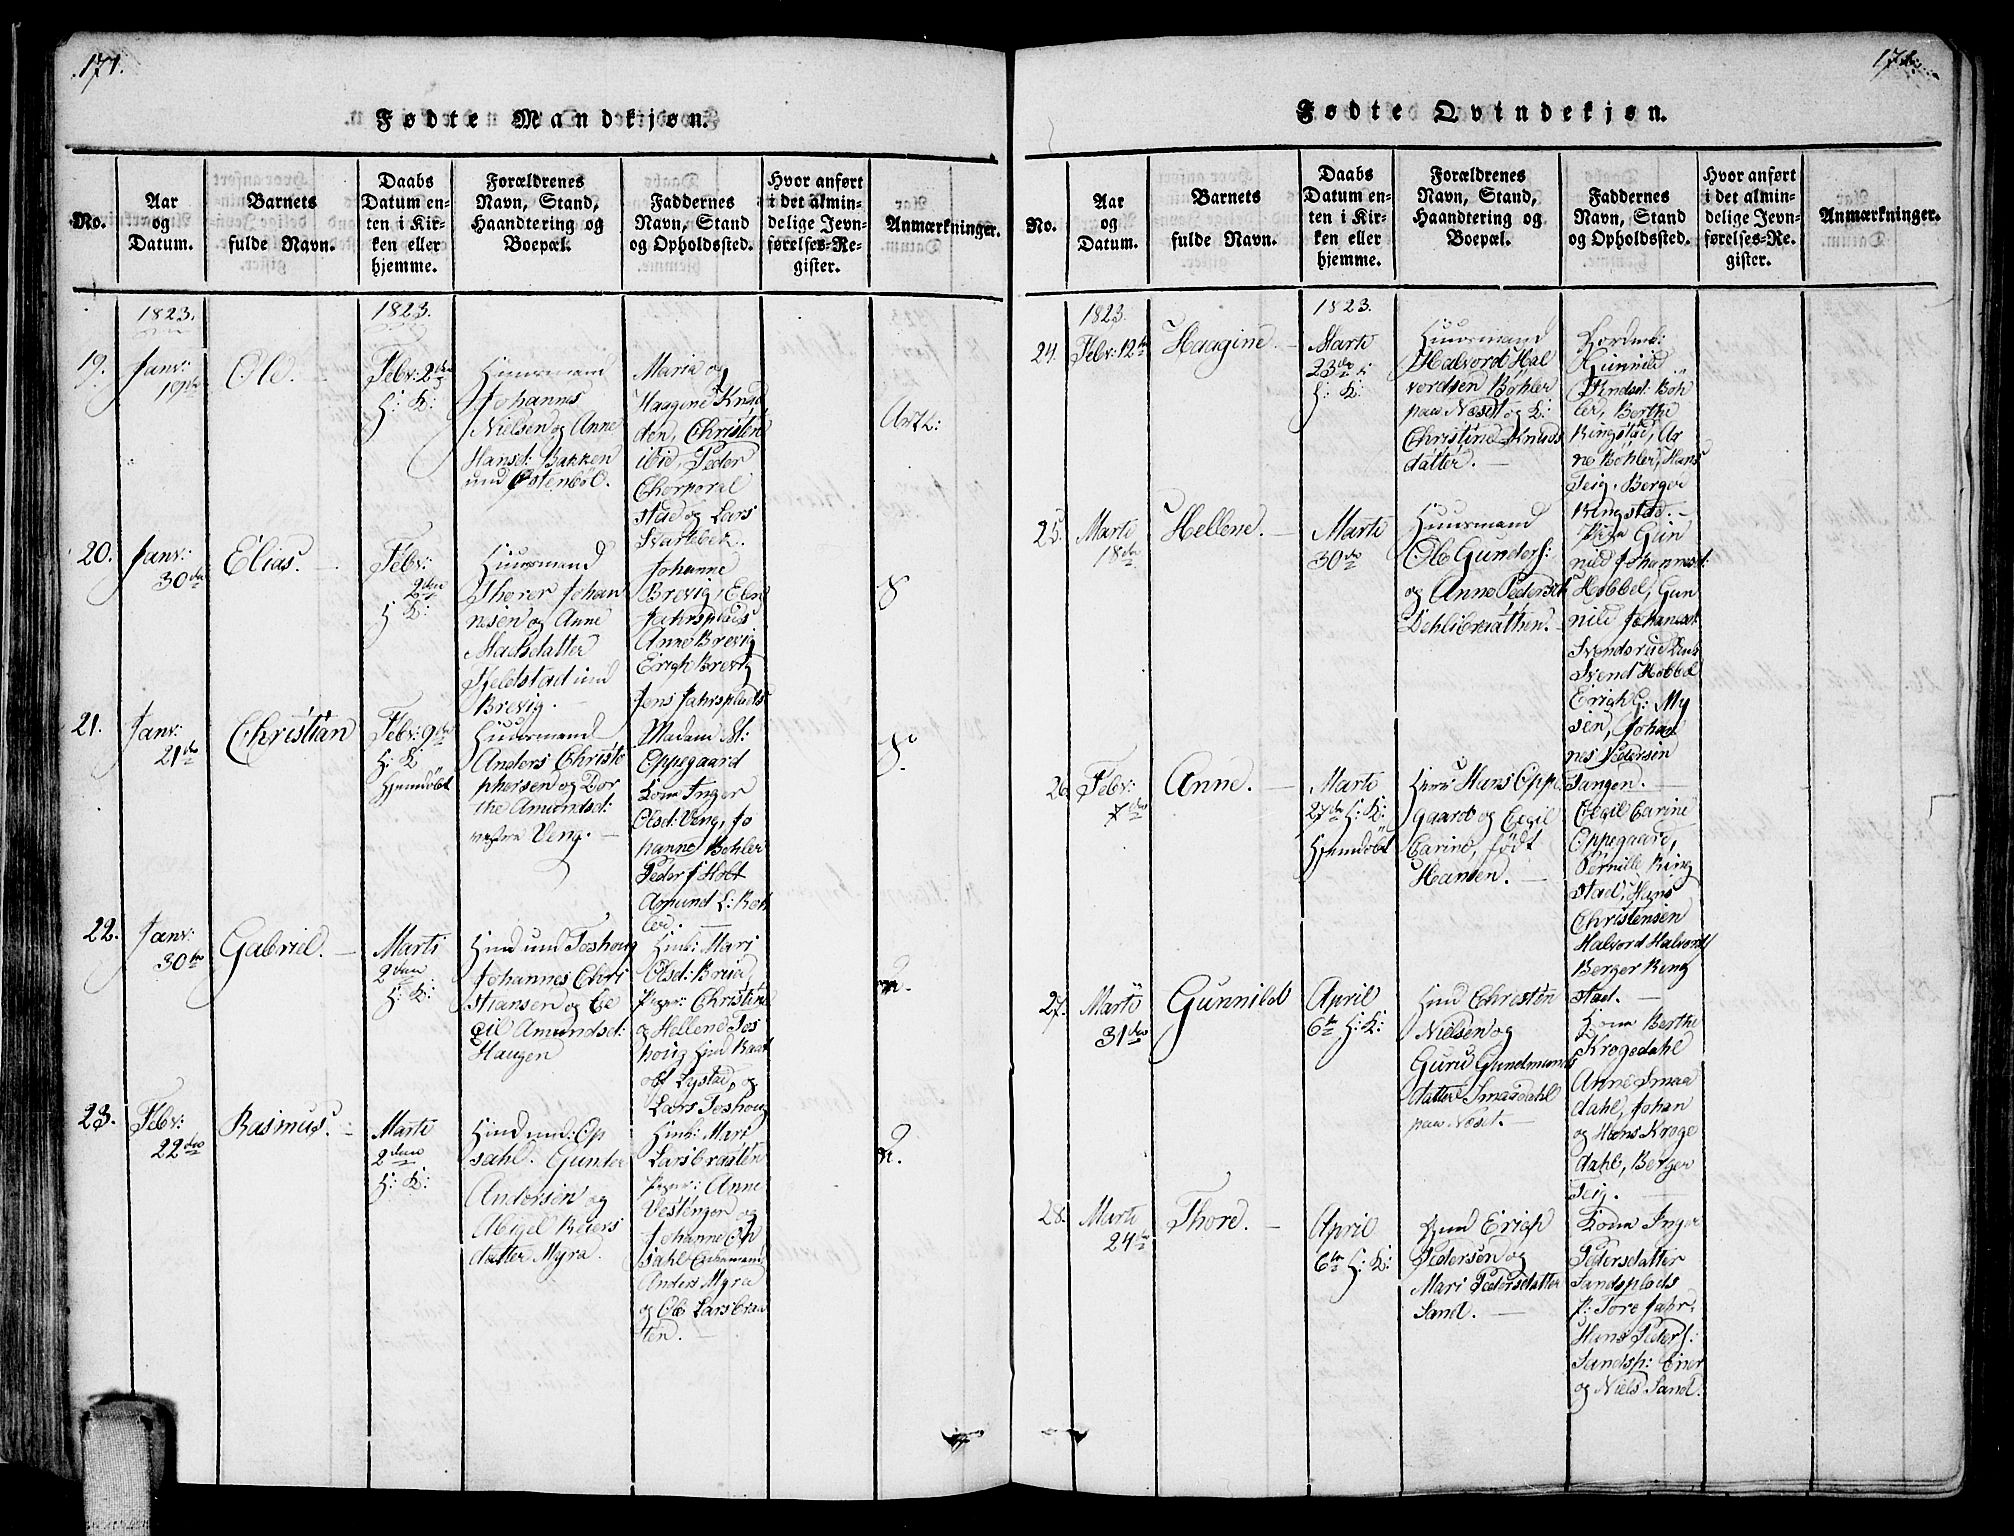 171.
Fødte Mandkjøn.
No.
Aar
og
Datum.
Barnets
fulde Navn.
Daabs
Datum en-
ten i Kir-
ken eller
hjemme.
Forældrenes
Navn, Stand,
Haandtering og
Boepæl.
Faddernes
Navn, Stand
og Opholdssted.
Hvor anført
i det almin-
delige Jevn-
førelses-Re-
gister.
Anmærkninger.
1823.
1823.
19.
Janv:
19de
Ole.
Febr: 2den
H: K:
Huusmand
Johannes
Nielsen og Anne
Hansd: Bakken
und Østenböl.
Maria og
Haagine Knud
den, Christen
ibid, Peder
Chorporal
stad og Lars
Svartebek.
20.
Janv:
30de
Elias.
Febr:
2den
H: K:
Huusmand
Thorer Johan
nesen og Anne
Madsdatter
Fjeldstad und
Brevig.
Johanne
Brevig, Elen
Jahrsplads
Anne Brevig
Erich Brevig
Jens Jahrsplads
8
21.
Janv:
21de
Christian
Febr: 9de
H: K
Hjemdöbt
Huusmand
Anders Christo
phersen og Dor
the Amundsd:
vestre Veng.
Madam M:
Oppegaard
Kone Inger
Olsd: Veng, Jo
hanne Bohler
Peder J Holt
Amund L: Boh
ler.
8.
22.
Janv:
30te
Gabriel.
Marti
2den
H: K:
Hind und Toshoug
Johannes Chri
stiansen og Ce
cil Amundsd:
Haugen
Hind: Mari
Olsd: Bru
Piger: Christine
og Hellene Tos
houg
Lystad, og
Lars Toshoug
2.
23.
Febr:
22de
Rasmus.
Marti
2den
H: K:
Hind und: Op
sahl. Gunder
Andersen og
Abigel Reiers
datter Myra.
Hind: Mari
Larsbraaten
Piger: Anne
Vestengen og
Johanne Op
sahl
Anders Myra
og Ole Larsbraa
ten.
2.
172.
Fødte Qvindekjøn.
No.
Aar
og
Datum.
Barnets
fulde Navn.
Daabs
Datum en-
ten i Kir-
ken eller
hjemme.
Forældrenes
Navn, Stand,
Haandtering og
Boepæl.
Faddernes
Navn, Stand
og Opholdssted.
Hvor anført
i det almin-
delige Jevn-
førelses-Re-
gister.
Anmærkninger.
1823.
1823.
24.
Febr: 12te
Haagine.
Marti
23de
H: K:
Huusmand
Halvord Hal
vordsen Bøhler
paa Næset og K:
Christine Knuds
datter.
Gunnild
Böh
ler, Berthe
Ringstad, Ar
ne Bohler, Hans
Teig, Berger
Ringstad.
25.
Marti
18de
Hellene.
Marti
30de
Huusmand
Ole Gunders:
og Anne Pedersdt
Dehlibraathen.
Piga Gun
nild Johannesd:
Høbbel, Gun
nild Johannesd:
Svendsrud
Svend Høbbel
Erich G: My
sen, Johan
nes Pedersen
Sangen.
26.
Febr:
7de
Anne.
Marti
27de H: K:
Hjemdöbt
Herr Hans Opp
gaard og Cecil
Carine, født
Hansen.
Cecil Carine
Oppegaard,
Pernille Ring
stad, Hans
Christensen
Halvord Halvords
Berger Ring
stad.
27.
Marti
31de
Gunnild
April
6te H: K:
Hind Christen
Nielsen og
Guru Gundmunds
datter Smaadahl
paa Næset.
Kone Berthe
Krogedahl
Anne Smaa
dahl, Johan
og Hans Kroge
dahl, Berger
Teig.
28.
Marti
24de
Thore.
April
6te H: K:
Hind Erich
Pedersen og
Mari Pedersdatter
Sand.
Kone Inger
Pedersdatter
Sandsplads
P: Tore Jahr,
Hans Peders:
Sandsp: Ener
og Niels Sand.